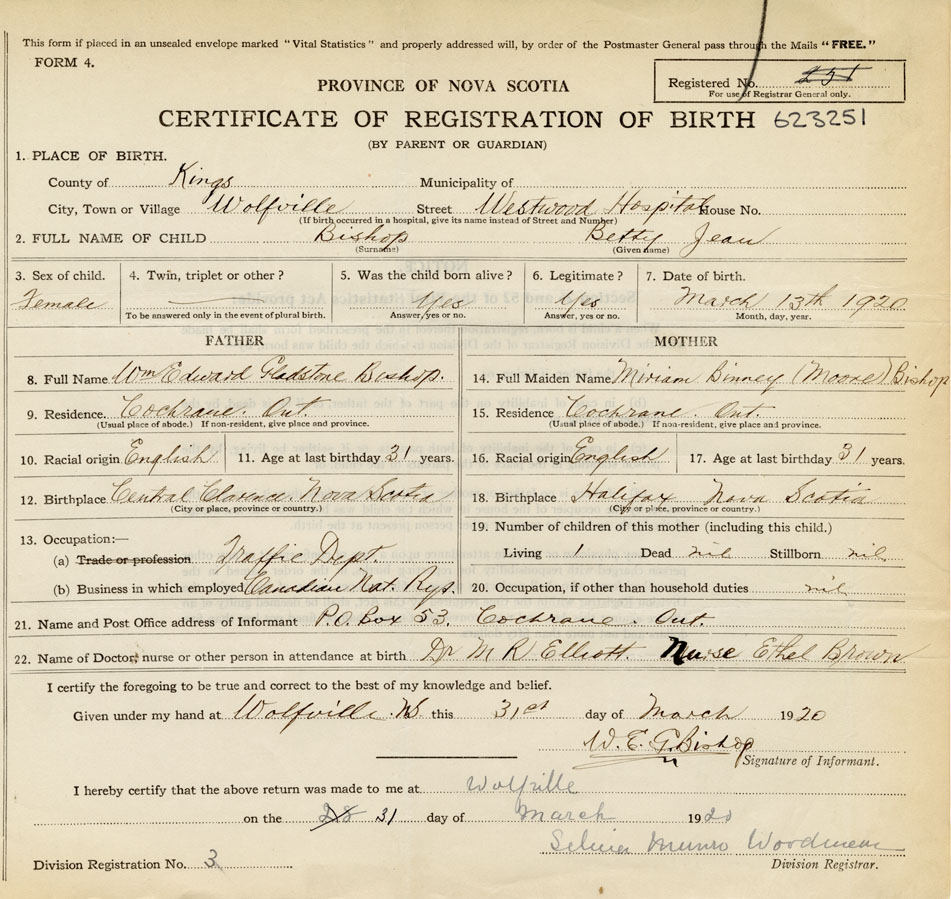 This form if placed in an unsealed envelope marked "Vital Statistics" and properly addressed will, by order of the Postmaster General pass through the Mails "FREE."
FORM 4.
PROVINCE OF NOVA SCOTIA
Registered No. 251
For use of Registrar General only.
CERTIFICATE OF REGISTRATION OF BIRTH 623251
(BY PARENT OR GUARDIAN)
1. PLACE OF BIRTH.
County of Kings Municipality of
City, Town or Village Wolfville Street Westwood Hospital House No.
(If birth occurred in a hospital, give its name instead of Street and Number)
2. FULL NAME OF CHILD Bishop Betty Jean
(Surname) (Given name)
3. Sex of child. 4. Twin, triplet or other? 5. Was the child born alive? 6. Legitimate? 7. Date of birth.
Female Yes Yes March 13th 1920
To be answered only in the event of plural birth. Answer, yes or no. Answer, yes or no. Month, day, year.
FATHER MOTHER
8. Full Name Wm Edward Gladstone Bishop. 14. Full Maiden Name Miriam Binney (Moore) Bishop
9. Residence. Cochrane. Ont. 15. Residence Cochrane. Ont.
(Usual place of abode.) If non-resident, give place and province. (Usual place of abode.) If non-resident, give place and province.
10. Racial origin English 11. Age at last birthday 31 years. 16. Racial origin English 17. Age at last birthday 31 years.
12. Birthplace Central Clarence. Nova Scotia 18. Birthplace Halifax Nova Scotia
(City or place, province or country.) (City or place, province or country.)
19. Number of children of this mother (including this child.)
13. Occupation:—
(a) Trade or profession Traffic Dept. Living 1 Dead nil Stillborn nil
(b) Business in which employed Canadian Nat. Rys. 20. Occupation, if other than household duties nil
21. Name and Post Office address of Informant P.O. Box 53. Cochrane. Ont.
22. Name of Doctor, nurse or other person in attendance at birth Dr M R Elliott. Nurse Ethel Brown
I certify the foregoing to be true and correct to the best of my knowledge and belief.
Given under my hand at Wolfville. N.S. this 31st day of March 1920
W. E. G. Bishop
Signature of Informant.
I hereby certify that the above return was made to me at Wolfville
on the 28 31 day of March 1920
Munro Woodman
Division Registration No. 3 Division Registrar.